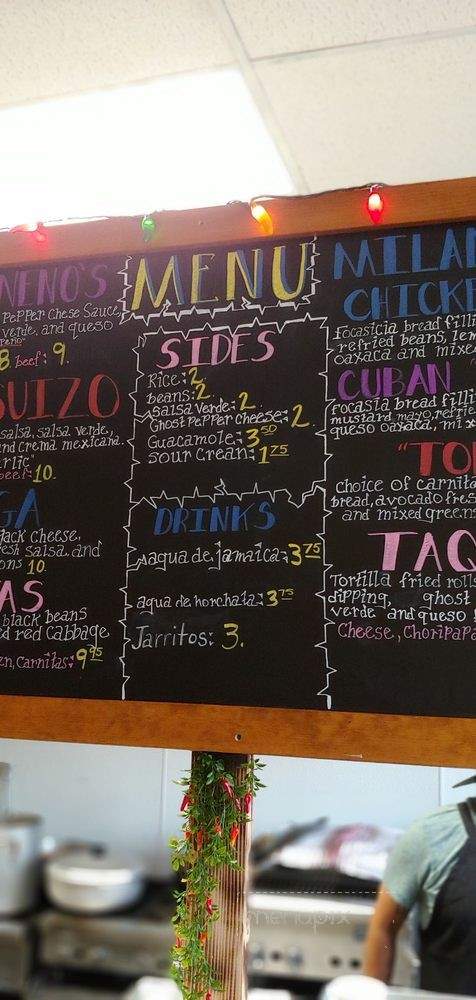 NENO'S
PePPer Chese Sauce
verde, and queso
8 beef: 9.
SUIZO
salsa, salsa verde,
and Crema mexicana.
beef: 10.
GA
jack Cheese,
salsa. and
10
AS
black beans
red Cabbage
Carnitas: 9 95
MENU
SIDES
Rice: 2
beans: 2
Salsa Verde: 2
Ghost PePPer Cheese: 2
Guacamole: 3 50
Sour Crean: 1 75
DRINKS
aqua de jamaica: 3 75
aqua de horchata: 3 75
Jarritos: 3.
MILAN
CHICKE
Focasicia bread filli
refried beans, lem
oaxaca and mixe
CUBAN
focasia bread filli
mustard mayo, refri
queso oaxaca, mix
"TO
Choice of carnita
bread, avocado fres
and mixed greens
TAQ
Tortilla fried rolls
dipping, ghost
verde and queso
Cheese, ChoripaPa
menupix